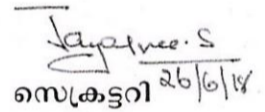 Jayasree.S
സെക്രട്ടറി 26/6/18